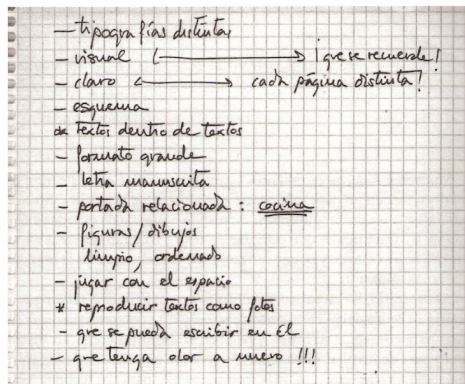 – tipografías distintas
– visual ⟵⟶ ¡que se recuerde!
– claro ⟵⟶ cada página distinta!
– esquema
* textos dentro de textos
– formato grande
– letra manuscrita
– portada relacionada : cocina
– figuras / dibujos
limpio, ordenado
– jugar con el espacio
* reproducir textos como fotos
– que se pueda escribir en Él
– que tenga olor a nuevo !!!